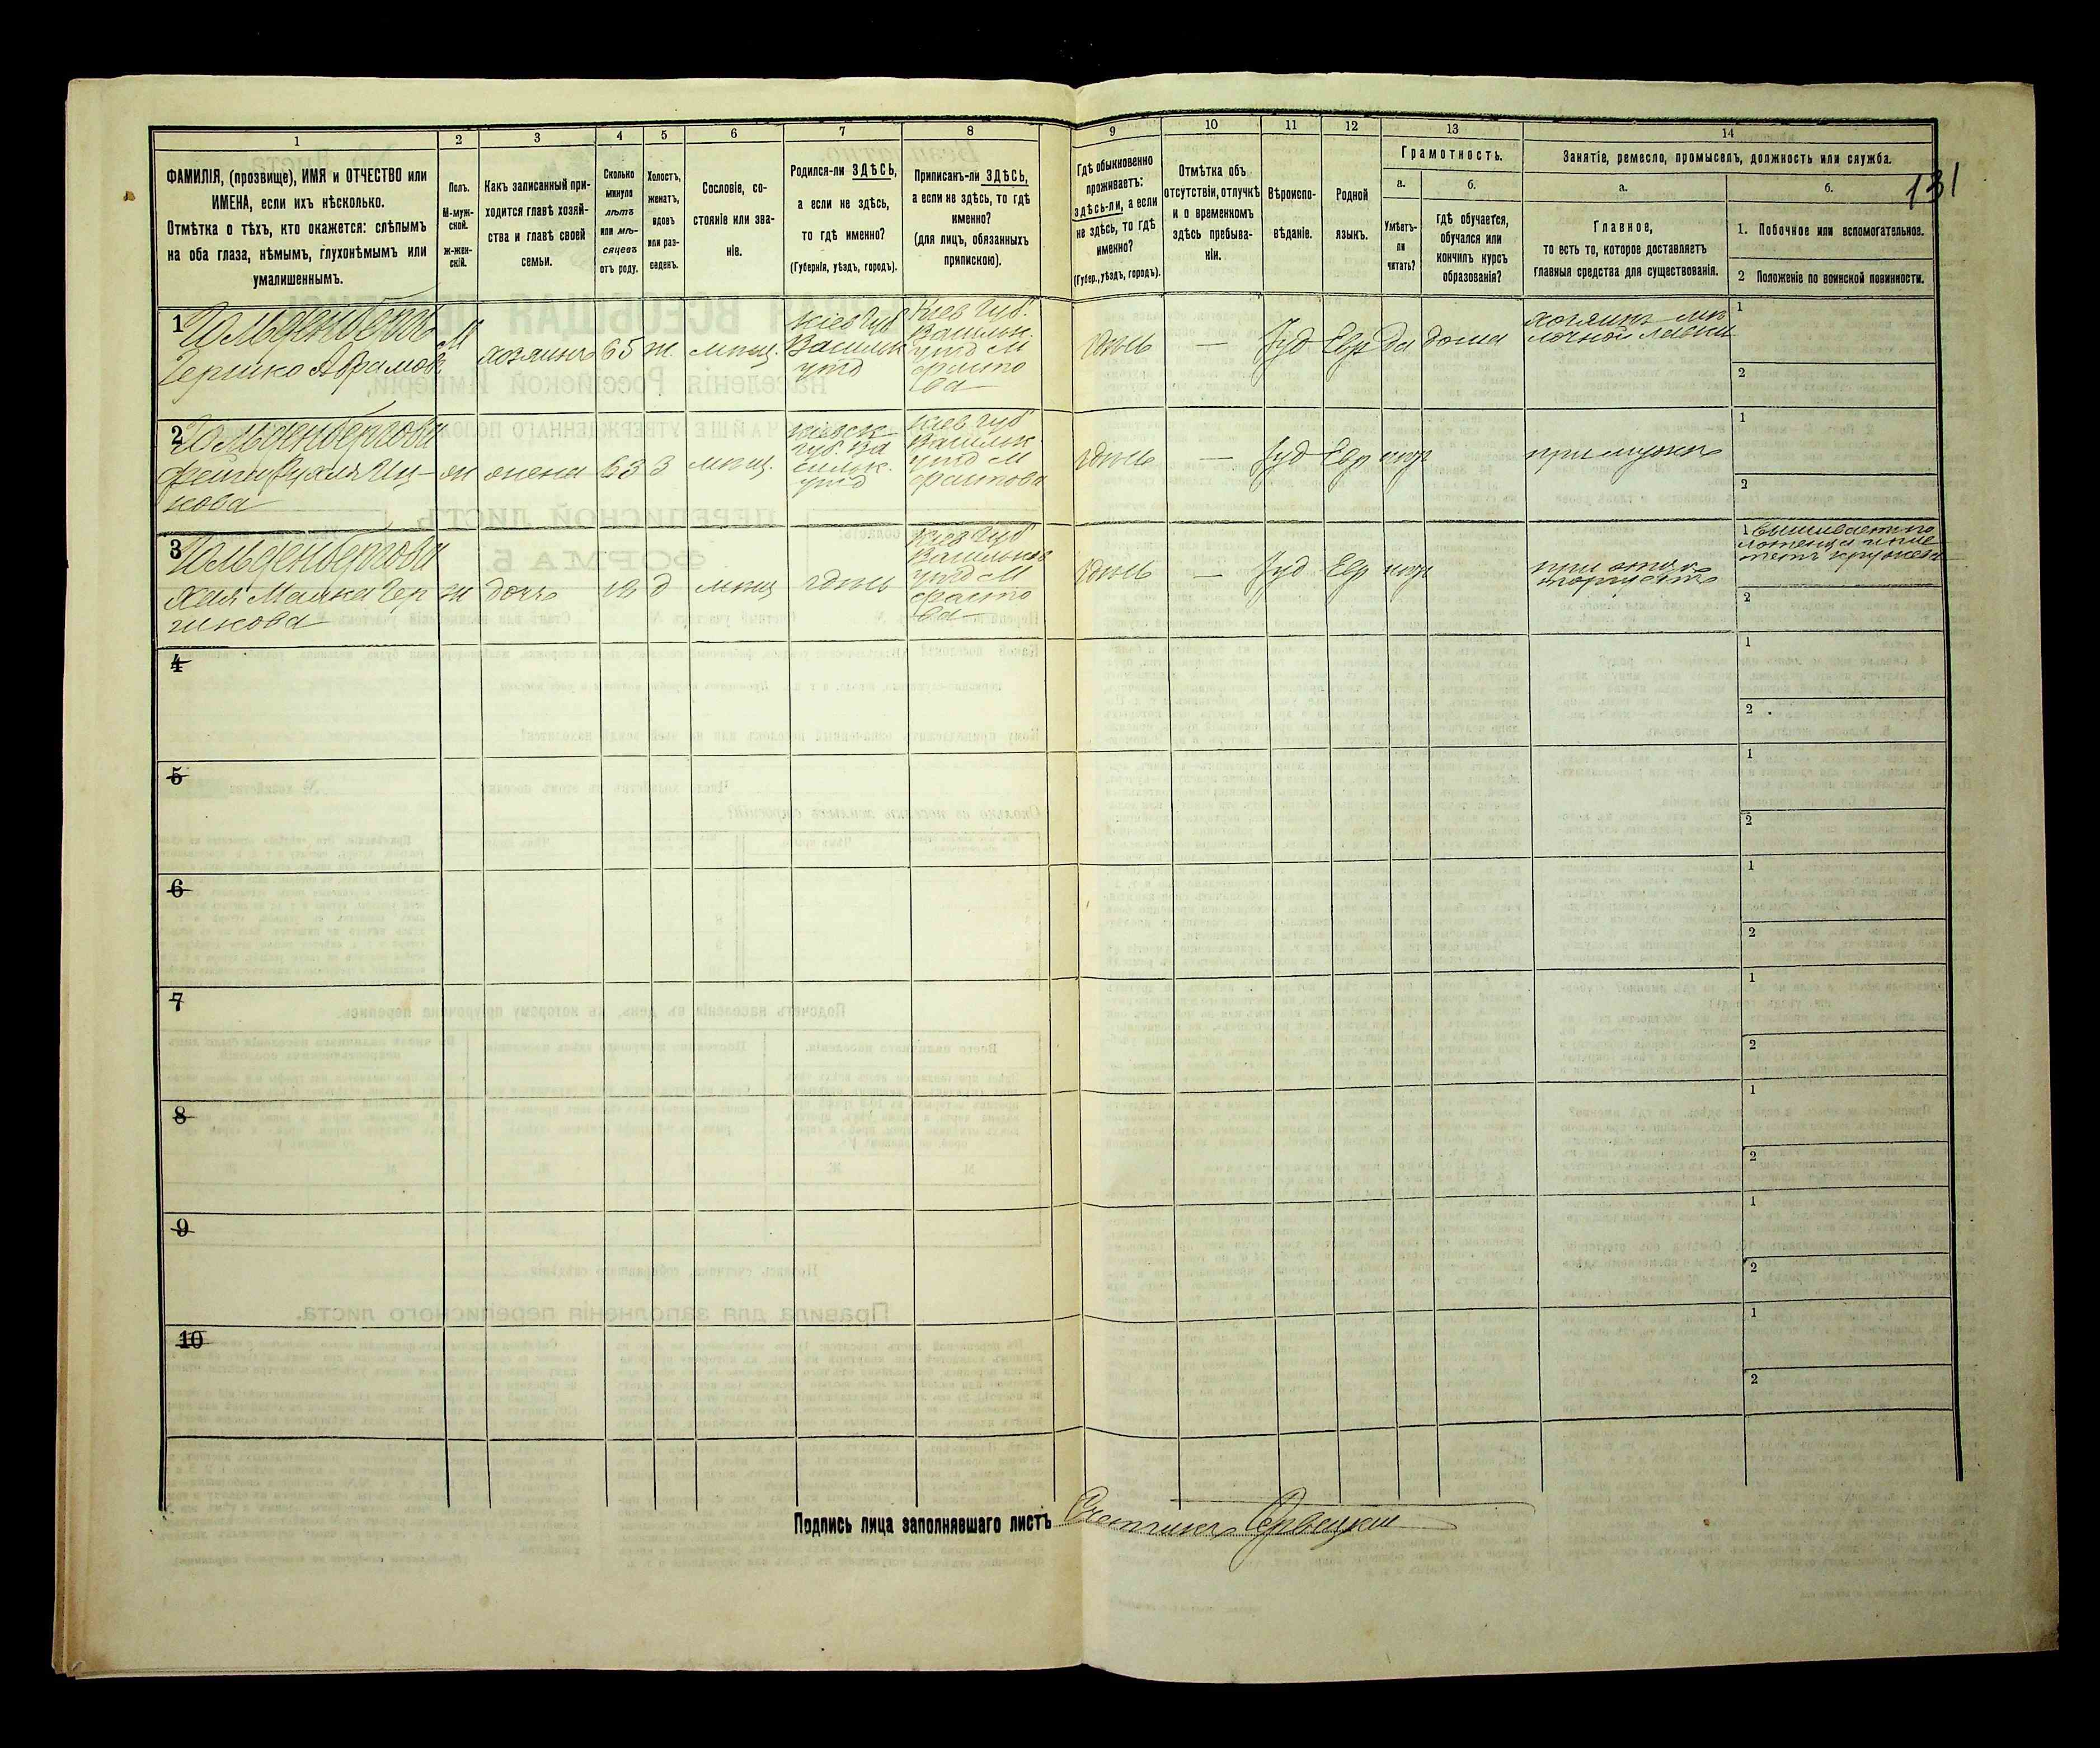 131
1
ФАМИЛІЯ, (прозвище), ИМЯ и ОТЧЕСТВО или
ИМЕНА, если ихъ нѣсколько.
Отмѣтка о тѣхъ, кто окажется: слѣпымъ
на оба глаза, нѣмымъ, глухонѣмымъ или
умалишеннымъ.
2
Полъ.
М-муж-
ской.
ж-жен-
скій.
3
Какъ записанный при-
ходится главѣ хозяй-
ства и главѣ своей
семьи.
4
Сколько
минуло
лѣтъ
или мѣ-
сяцевъ
отъ роду.
5
Холостъ,
женатъ,
вдовъ
или раз-
веденъ.
6
Сословіе, со-
стояніе или зва-
ніе.
7
Родился-ли ЗДѢСЬ,
а если не здѣсь,
то гдѣ именно?
(Губернія, уѣздъ, городъ).
8
Приписанъ-ли ЗДѢСЬ,
а если не здѣсь, то гдѣ
именно?
(для лицъ, обязанныхъ
припискою).
9
Гдѣ обыкновенно
проживаетъ:
здѣсь-ли, а если
не здѣсь, то гдѣ
именно?
(Губер., уѣздъ, городъ).
10
Отмѣтка объ
отсутствіи, отлучкѣ
и о временномъ
здѣсь пребыва-
ніи.
11
Вѣроиспо-
вѣданіе.
12
Родной
языкъ.
13
Грамотность.
а.
Умѣетъ-
ли
читать?
б.
гдѣ обучается,
обучался или
кончилъ курсъ
образованія?
14
Занятіе, ремесло, промыселъ, должность или служба.
а.
Главное,
то есть то, которое доставляетъ
главныя средства для существованія.
б.
1. Побочное или вспомогательное.
2 Положеніе по воинской повинности.
1
Гольденбергъ
Гершко Аврамовъ
М
хозяинъ
65
ж.
мѣщ.
Кіев Губ
Васильк
уѣзд
Кіев Губ.
Васильк.
уѣзд М
Фасто
ва
здѣсь
—
Іуд
Евр
Да
дома
хозяинъ ме
лочной лавки
1
2
2
Гольденбергова
Фейга Рухля Иц-
кова
ж
жена
63
З
мѣщ.
Кіевск
Губ. Ва
сильк.
уѣзд
Кіев Губ
Васильк
уѣзд М
Фастова
здѣсь
—
Іуд
Евр
нѣт
при мужѣ
1
2
3
Гольденбергова
Хая Малка Гер
шкова
ж
дочь
19
д
мѣщ
здѣсь
Кіев Губ
Васильков
уѣзд М
Фасто
ва
здѣсь
—
Іуд
Евр
нѣт
при отцѣ
1
2
4
1
2
5
1
2
6
1
2
7
1
2
8
1
2
9
1
2
10
1
2
Подпись лица заполнявшаго листъ
Счетчикъ